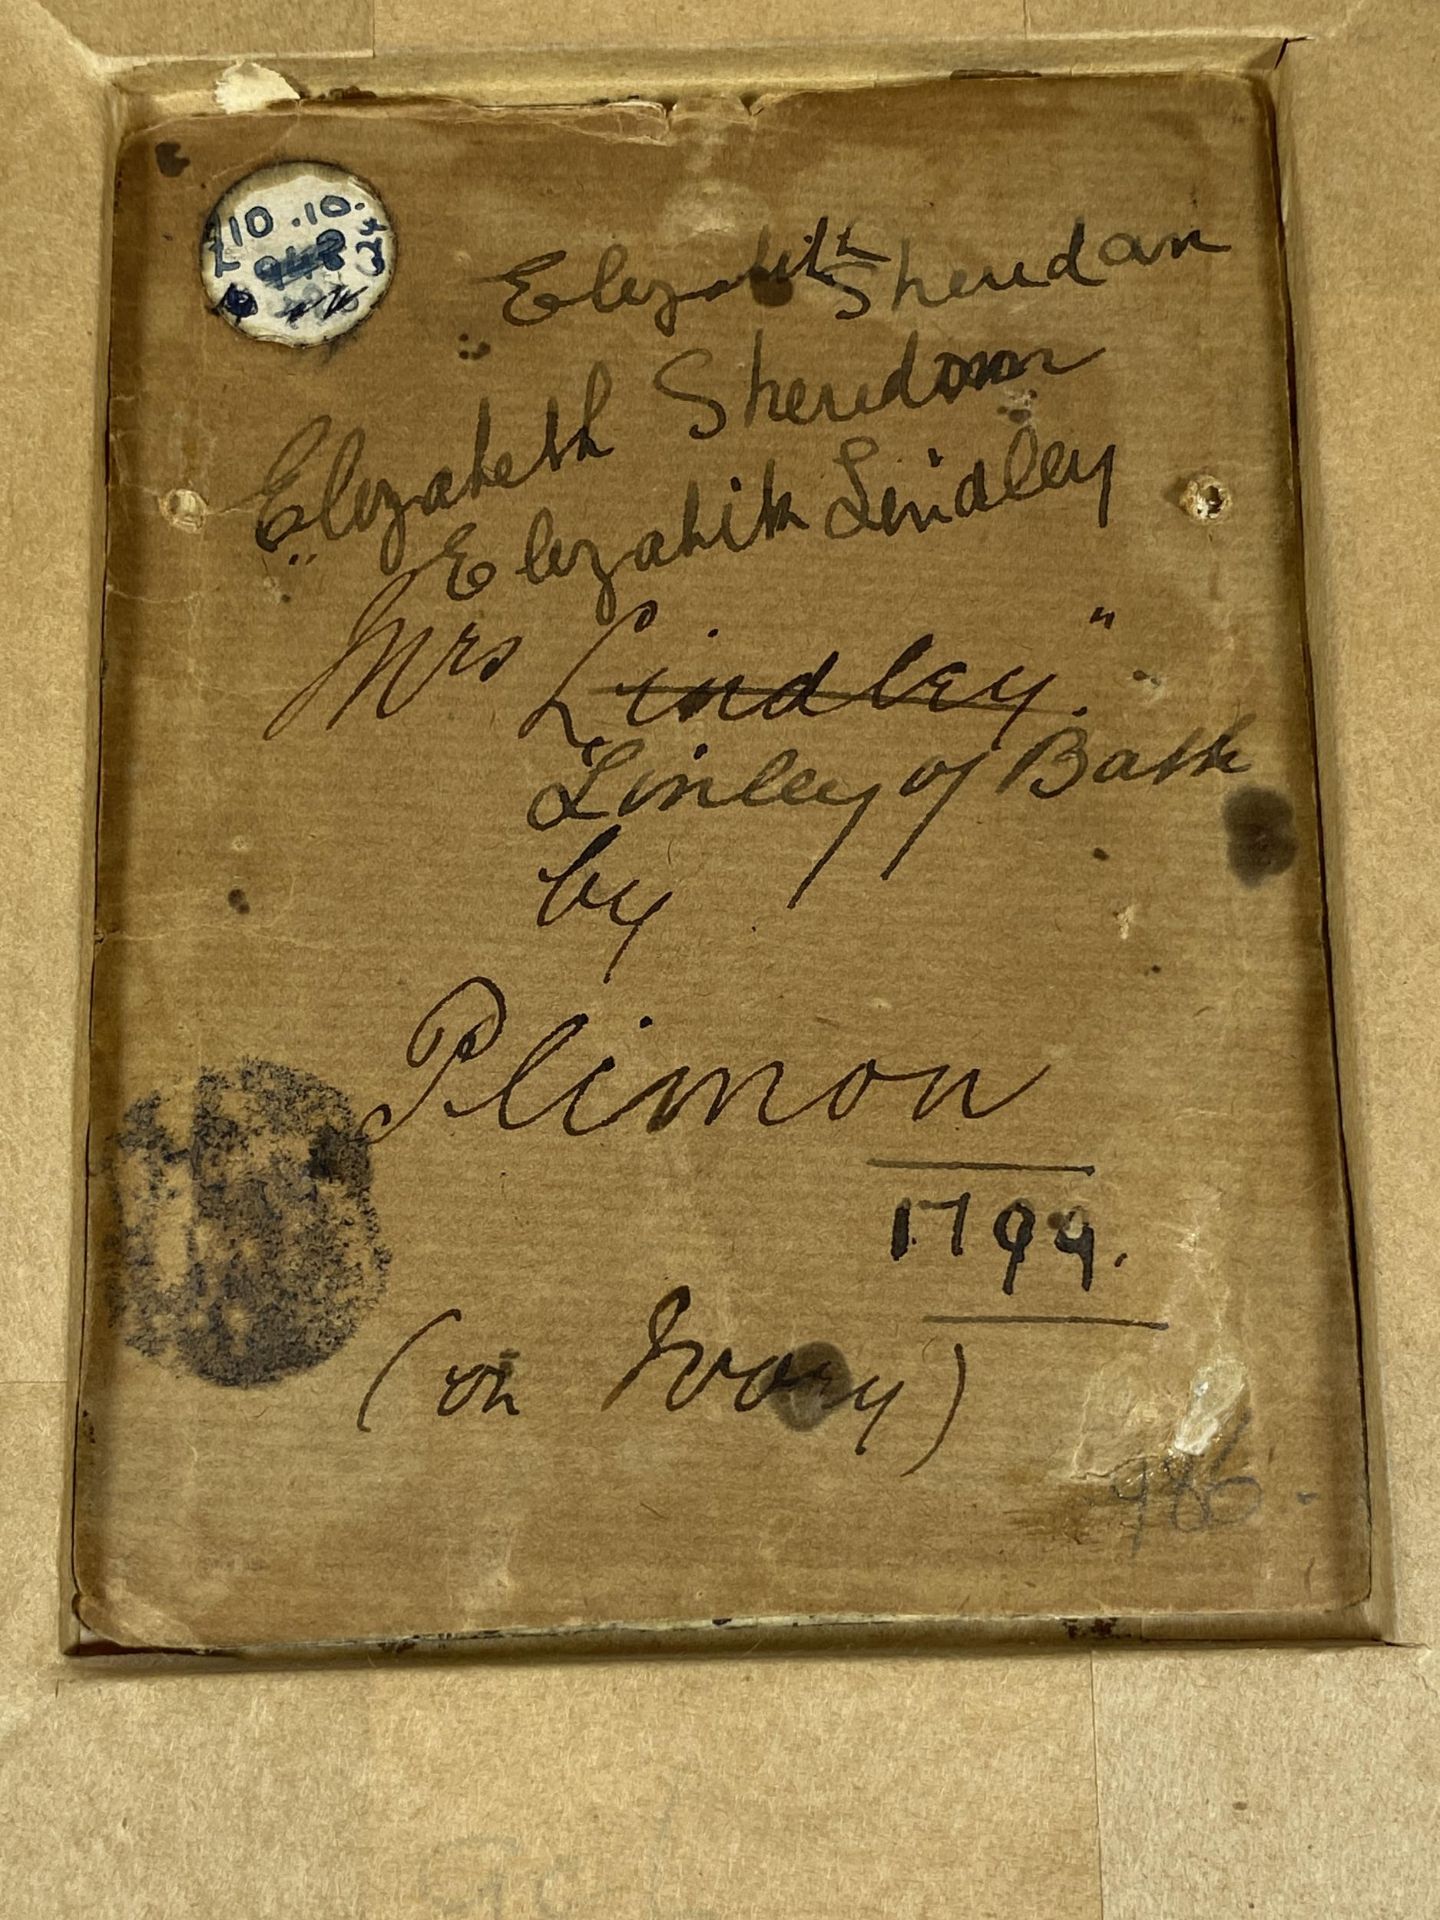 10.10.
Elizabeth Sheridan
Elizabeth Sheridan
Elizabeth Lindley
"Mrs Lindley."
Linley of Bath
by
Plimon
1799.
(on Ivory)
986